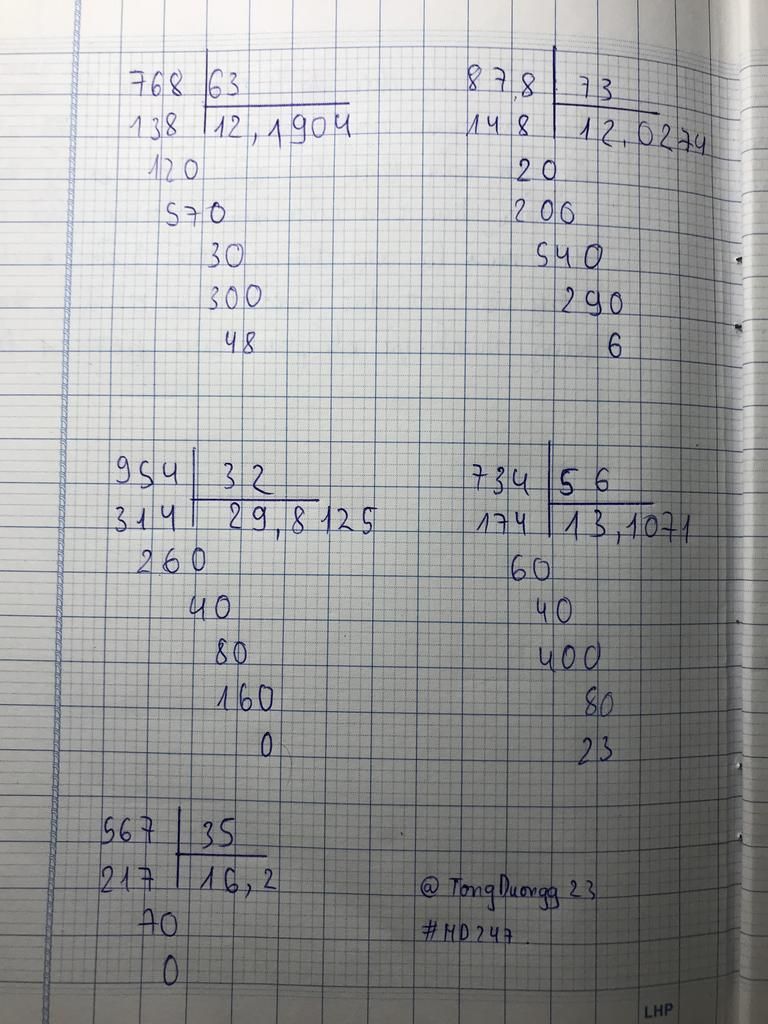 768 63
138 12,1904
120
570
30
300
48
87,8 73
148 12,0274
20
200
540
290
6
954 32
314 29,8125
260
40
80
160
0
734 56
174 13,1071
60
40
400
80
23
567 35
217 16,2
70
0
@TongDuongg23
#MD247
LHP